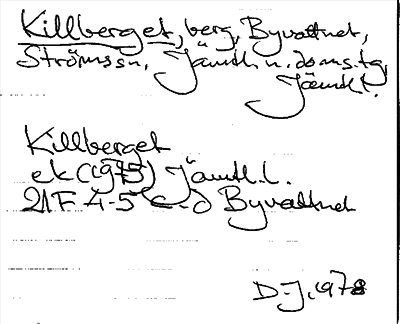 Killberget, berg, Byvattnet,
Ströms sn, Jämtl. n. doms.tg,
Jämtl.
Killberget
ek (1975) Jämtl. l.
21F 4-5 c-d Byvattnet
D-J. 1978